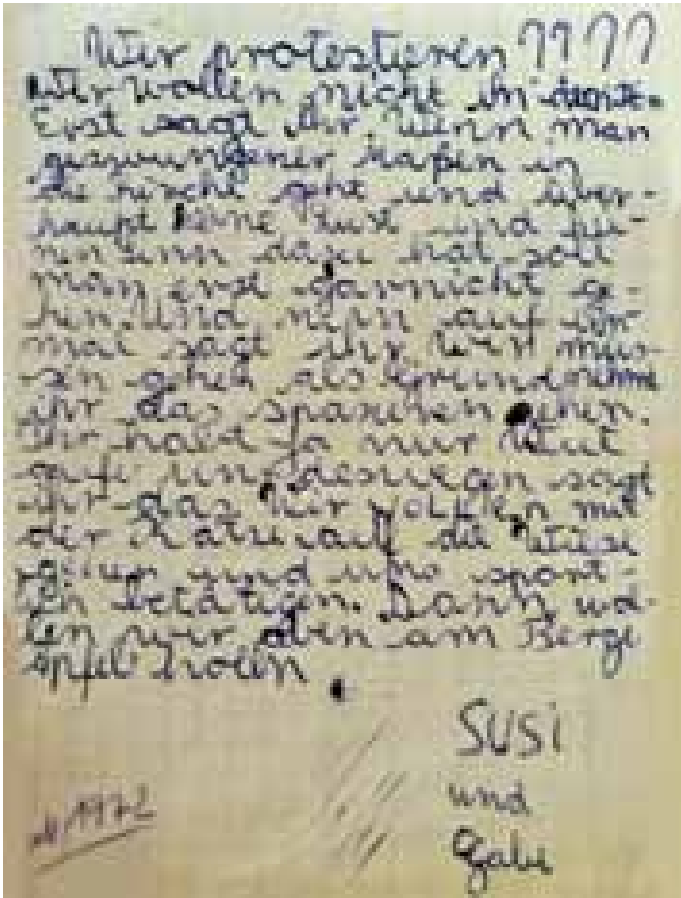 Wir protestieren !!!!
Wir wollen nicht in
Erst sagt ihr, wenn man
gezwungener maßen in
die kirche geht und über-
haupt keine Lust und kei-
nen sinn dazu hat soll
man erst garnicht ge-
hen. Und nun auf ein
mal sagt ihr. Wir müs-
sen gehen als grund nehmt
ihr das spazieren gehen.
Ihr habt ja nur Wut
auf uns deswegen sagt
ihr das Wir wollen mit
der Katze auf die Wiese
gehen und uns sport-
lich betätigen. Dann wol-
len wir oben am Berge
äpfel holen
SUSi
und
Gabi
1972